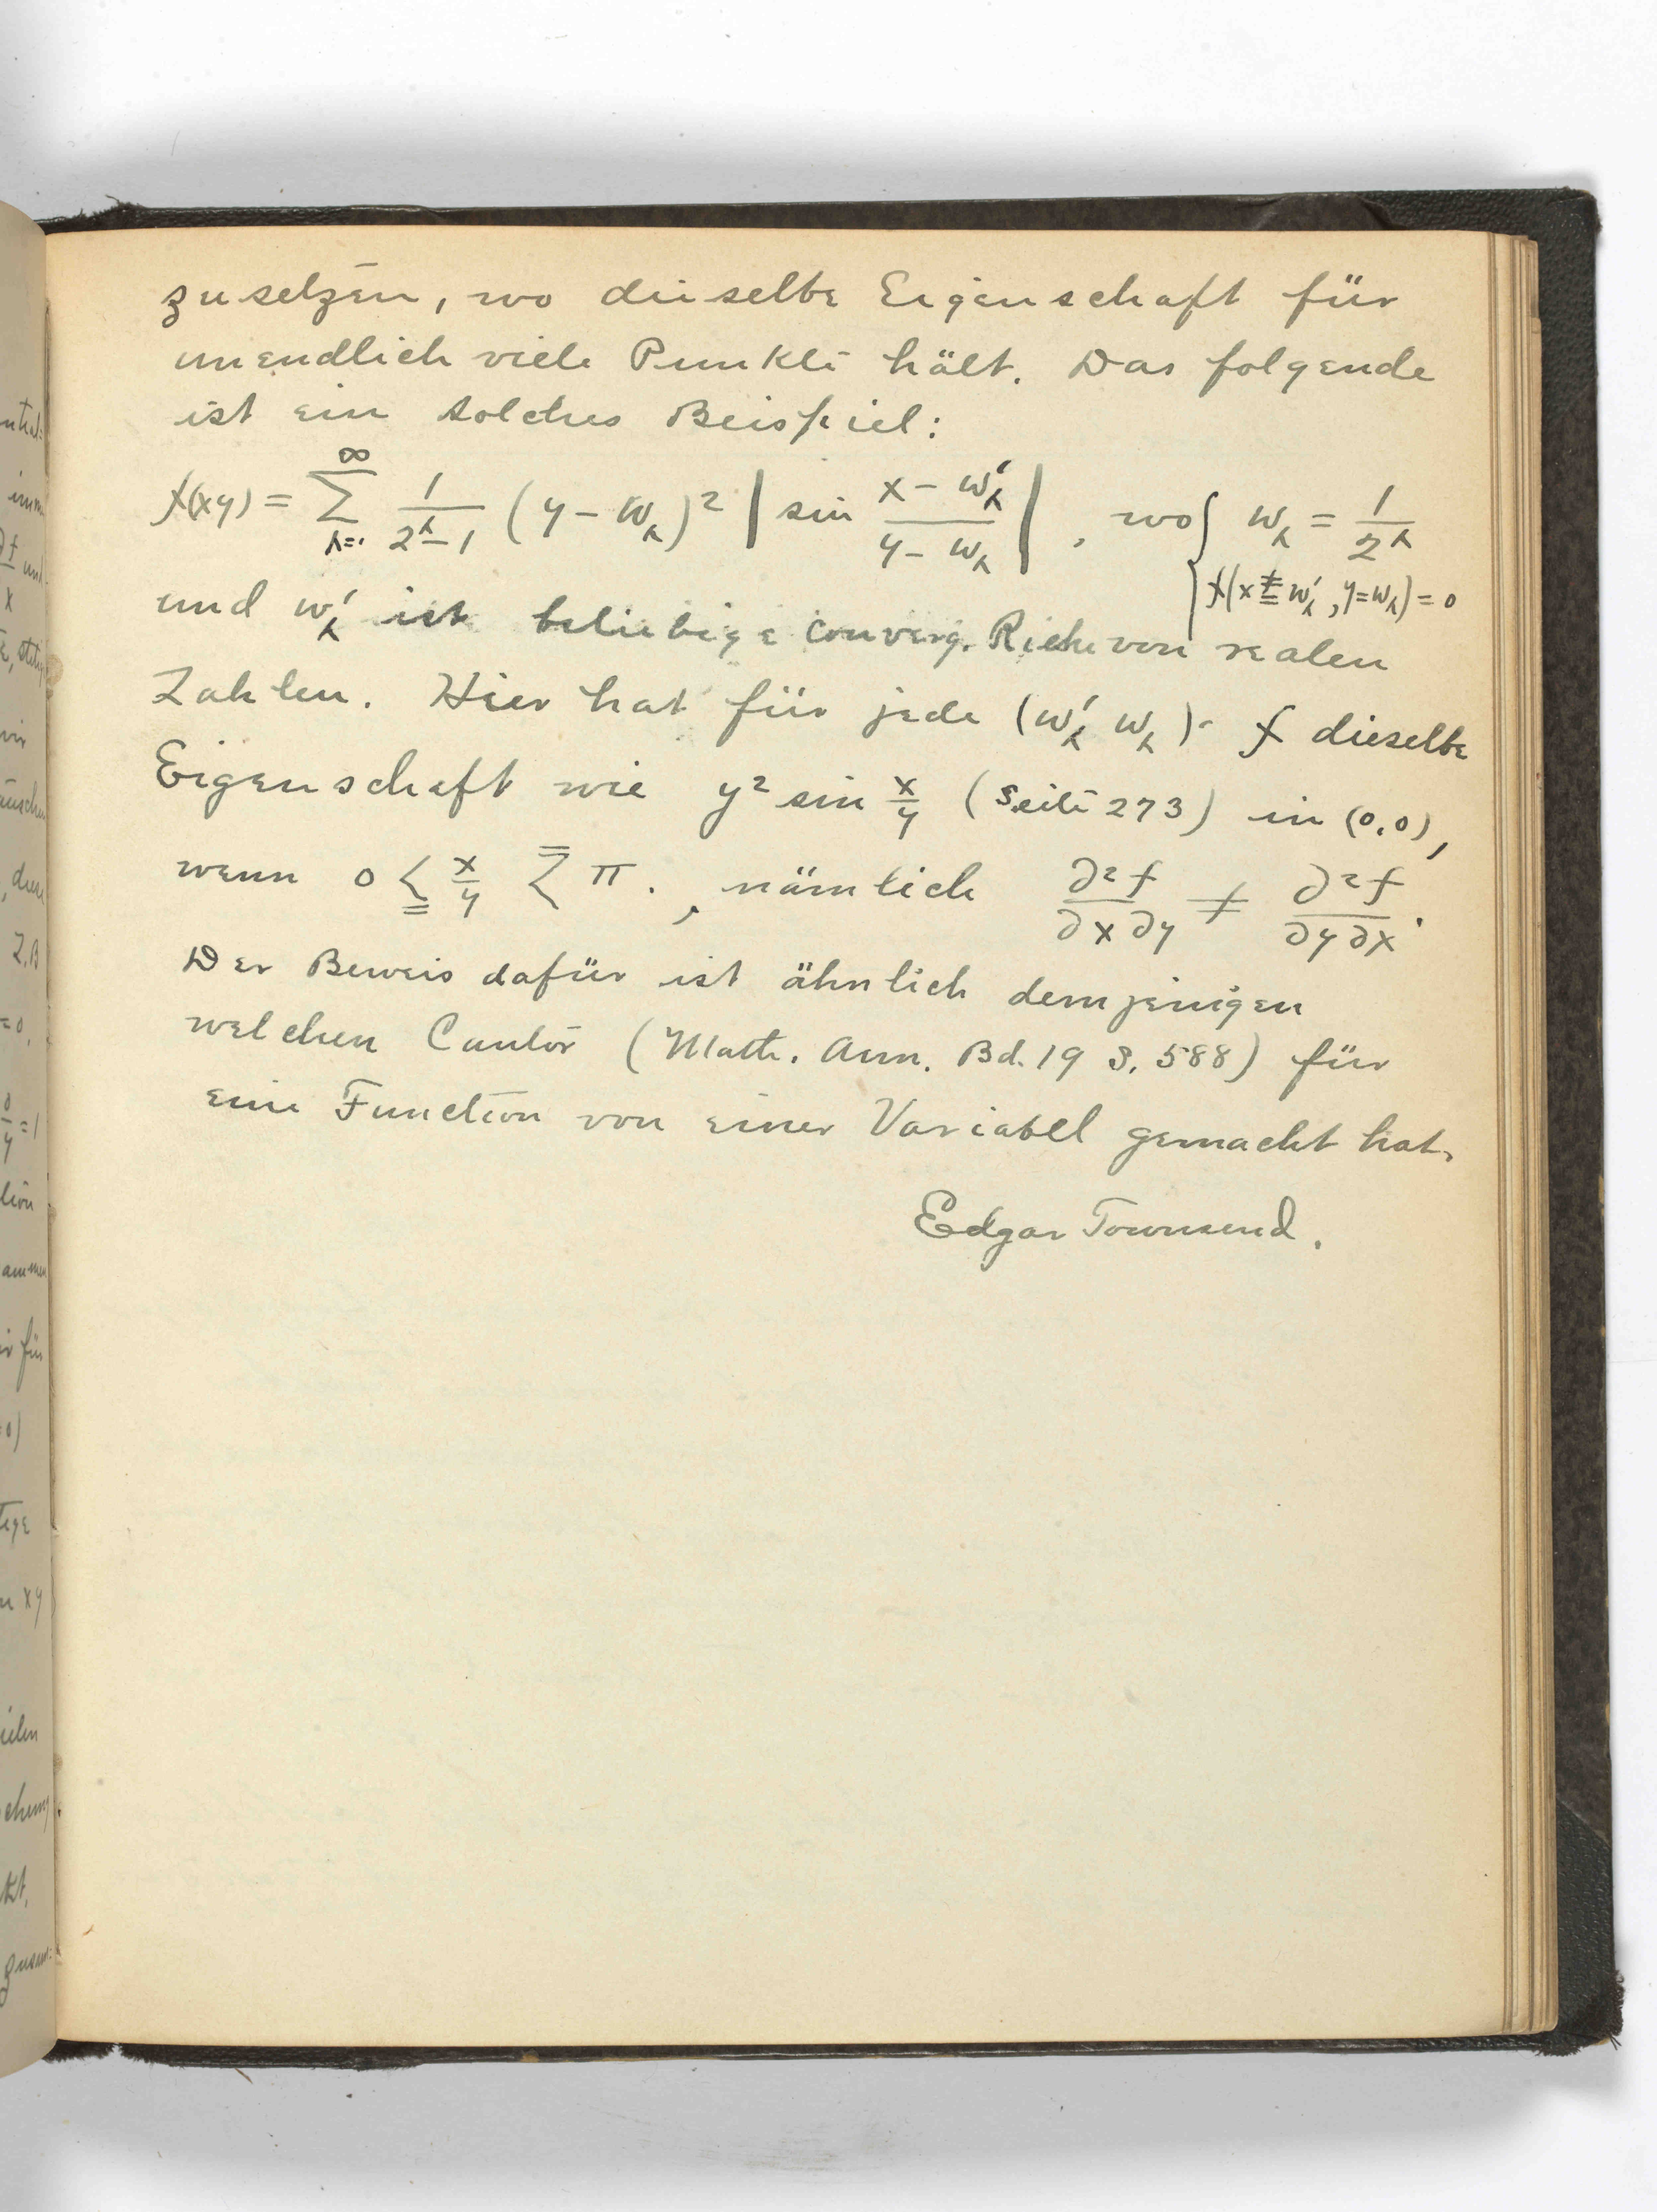 zusetzen, wo dieselbe Eigenschaft für
unendlich viele Punkte hält. Das folgende
ist ein solches Beispiel:
f(xy) = ∑_{λ=1}^{∞} 1/(2^λ - 1) (y - w_λ)² | sin (x - w'_λ)/(y - w_λ) | , wo { w_λ = 1/2^λ
{ f(x ≠= w'_λ, y = w_λ) = 0
und w'_λ ist beliebige converg. Riehe von realen
Zahlen. Hier hat für jede (w'_λ w_λ) f dieselbe
Eigenschaft wie y² sin x/y (Seite 273) in (0,0),
wenn 0 ≦ x/y ≦ π, nämlich ∂²f/∂x∂y ≠ ∂²f/∂y∂x.
Der Beweis dafür ist ähnlich demjenigen
welchen Cantor (Math. Ann. Bd. 19 S. 588) für
eine Function von einer Variabel gemacht hat.
Edgar Townsend.